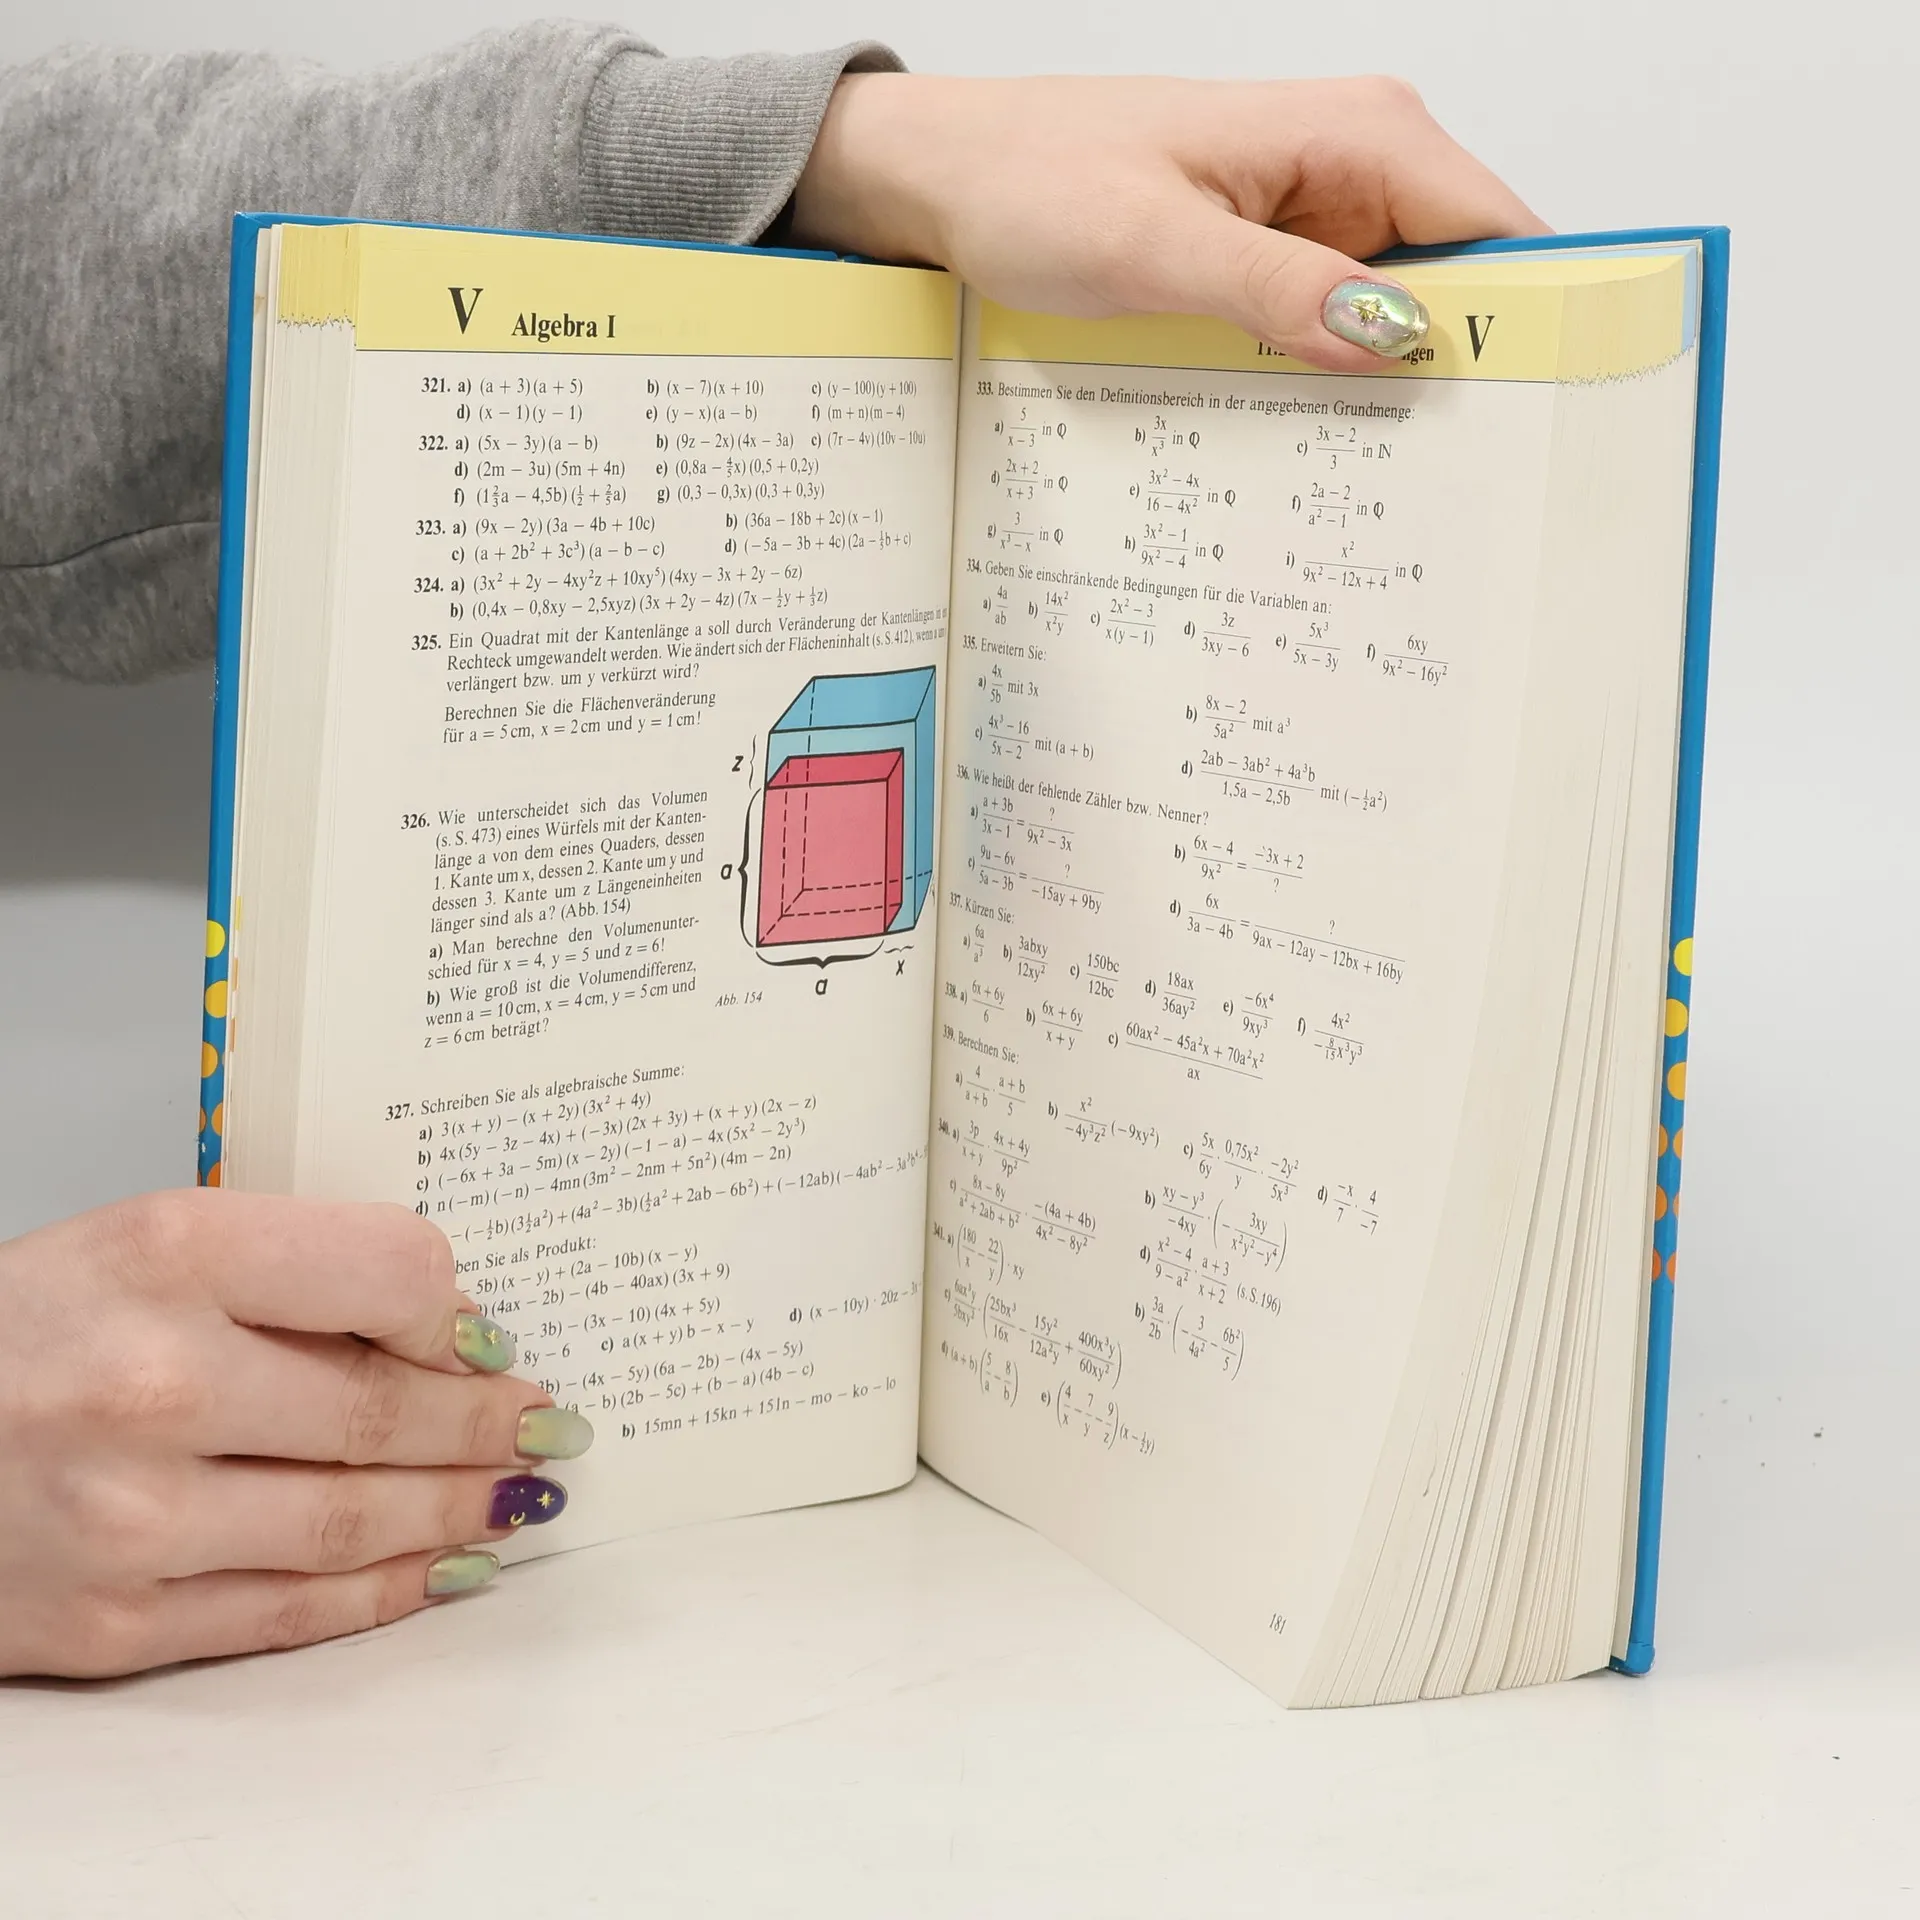 V Algebra I
321. a) (a + 3)(a + 5) b) (x − 7)(x + 10) c) (y − 100)(y + 100)
d) (x − 1)(y − 1) e) (y − x)(a − b) f) (m + n)(m − 4)
322. a) (5x − 3y)(a − b) b) (9z − 2x)(4x − 3a) c) (7r − 4v)(10v − 10u)
d) (2m − 3u)(5m + 4n) e) (0,8a − 4/5x)(0,5 + 0,2y)
f) (1 2/3a − 4,5b)(1/2 + 2/5a) g) (0,3 − 0,3x)(0,3 + 0,3y)
323. a) (9x − 2y)(3a − 4b + 10c) b) (36a − 18b + 2c)(x − 1)
c) (a + 2b² + 3c³)(a − b − c) d) (−5a − 3b + 4c)(2a − 1/3b + c)
324. a) (3x² + 2y − 4xy²z + 10xy⁵)(4xy − 3x + 2y − 6z)
b) (0,4x − 0,8xy − 2,5xyz)(3x + 2y − 4z)(7x − 1/2y + 1/3z)
325. Ein Quadrat mit der Kantenlänge a soll durch Veränderung der Kantenlängen
Rechteck umgewandelt werden. Wie ändert sich der Flächeninhalt (s. S. 412), wenn
verlängert bzw. um y verkürzt wird?
Berechnen Sie die Flächenveränderung
für a = 5 cm, x = 2 cm und y = 1 cm!
326. Wie unterscheidet sich das Volumen
(s. S. 473) eines Würfels mit der Kanten-
länge a von dem eines Quaders, dessen
1. Kante um x, dessen 2. Kante um y und
dessen 3. Kante um z Längeneinheiten
länger sind als a? (Abb. 154)
a) Man berechne den Volumenunter-
schied für x = 4, y = 5 und z = 6!
b) Wie groß ist die Volumendifferenz,
wenn a = 10 cm, x = 4 cm, y = 5 cm und
z = 6 cm beträgt?
z
a
a
x
Abb. 154
327. Schreiben Sie als algebraische Summe:
a) 3(x + y) − (x + 2y)(3x² + 4y)
b) 4x(5y − 3z − 4x) + (−3x)(2x + 3y) + (x + y)(2x − z)
c) (−6x + 3a − 5m)(x − 2y)(−1 − a) − 4x(5x² − 2y³)
d) n(−m)(−n) − 4mn(3m² − 2nm + 5n²)(4m − 2n)
−(−1/2b)(3 1/2a²) + (4a² − 3b)(1/2a² + 2ab − 6b²) + (−12ab)(−4ab² − 3a³b⁴
ben Sie als Produkt:
− 5b)(x − y) + (2a − 10b)(x − y)
(4ax − 2b) − (4b − 40ax)(3x + 9)
− 3b) − (3x − 10)(4x + 5y)
8y − 6 c) a(x + y)b − x − y d) (x − 10y) · 20z − 3x
3b) − (4x − 5y)(6a − 2b) − (4x − 5y)
(a − b)(2b − 5c) + (b − a)(4b − c)
b) 15mn + 15kn + 15ln − mo − ko − lo
11. gen V
333. Bestimmen Sie den Definitionsbereich in der angegebenen Grundmenge:
a) 5/(x − 3) in ℚ b) 3x/x³ in ℚ c) (3x − 2)/3 in ℕ
d) (2x + 2)/(x + 3) in ℚ e) (3x² − 4x)/(16 − 4x²) in ℚ f) (2a − 2)/(a² − 1) in ℚ
g) 3/(x³ − x) in ℚ h) (3x² − 1)/(9x² − 4) in ℚ i) x²/(9x² − 12x + 4) in ℚ
334. Geben Sie einschränkende Bedingungen für die Variablen an:
a) 4a/ab b) 14x²/x²y c) (2x² − 3)/(x(y − 1)) d) 3z/(3xy − 6) e) 5x³/(5x − 3y) f) 6xy/(9x² − 16y²)
335. Erweitern Sie:
a) 4x/5b mit 3x b) (8x − 2)/5a² mit a³
c) (4x³ − 16)/(5x − 2) mit (a + b) d) (2ab − 3ab² + 4a³b)/(1,5a − 2,5b) mit (−1/2a²)
336. Wie heißt der fehlende Zähler bzw. Nenner?
a) (a + 3b)/(3x − 1) = ?/(9x² − 3x) b) (6x − 4)/9x² = (−3x + 2)/?
c) (9u − 6v)/(5a − 3b) = ?/(−15ay + 9by) d) 6x/(3a − 4b) = ?/(9ax − 12ay − 12bx + 16by)
337. Kürzen Sie:
a) 6a/a³ b) 3abxy/12xy² c) 150bc/12bc d) 18ax/36ay² e) −6x⁴/9xy³ f) 4x²/(−8/15x³y³)
338. a) (6x + 6y)/6 b) (6x + 6y)/(x + y) c) (60ax² − 45a²x + 70a²x²)/ax
339. Berechnen Sie:
a) 4/(a + b) · (a + b)/5 b) x²/(−4y³z²) (−9xy²) c) 5x/6y · 0,75x²/y · −2y²/5x³ d) −x/7 · 4/−7
340. a) 3p/(x + y) · (4x + 4y)/9p² b) (xy − y³)/(−4xy) · (−3xy/(x²y² − y⁴))
c) (8x − 8y)/(a² + 2ab + b²) · −(4a + 4b)/(4x² − 8y²) d) (x² − 4)/(9 − a²) · (a + 3)/(x + 2) (s. S. 196)
341. a) (180/x − 22/y) · xy b) 3a/2b · (−3/4a² − 6b²/5)
c) 6ax³y/5bxy² · (25bx³/16x − 15y²/12a²y + 400x³y/60xy²)
d) (a + b)(5/a − 8/b) e) (4/x − 7/y − 9/z)(x − 1/2y)
181